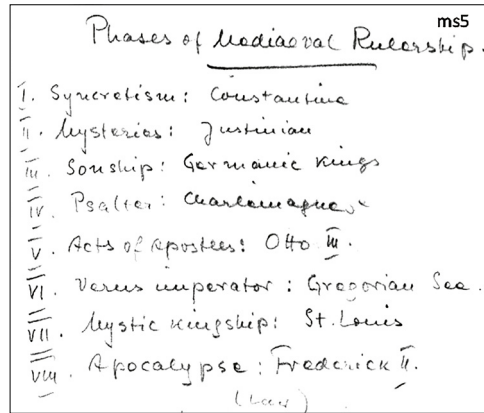 ms5
Phases of Mediaeval Rulership.
I. Syncretism: Constantine
II. Mysteries: Justinian
III. Sonship: Germanic Kings
IV. Psalter: Charlemagne
V. Acts of Apostles: Otto III.
VI. Verus imperator: Gregorian See.
VII. Mystic Kingship: St. Louis
VIII. Apocalypse: Frederick II.
(Law)